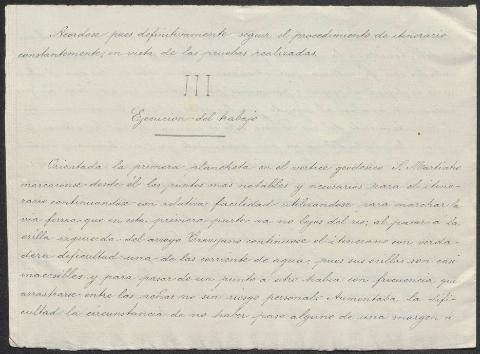 Acordose pues definitivamente seguir el procedimiento de itinerario
constantemente; en vista de las pruebas realizadas.
III
Ejecucion del trabajo
Orientada la primera plancheta en el vertice geodesico S. Martiño
marcaronse desde el los puntos mas notables y necesarios para el itine-
rario continuandose con relativa facilidad utilizandose para marchar la
via ferrea que en esta primera parte va no lejos del rio; al pasar a la
orilla izquierda del arroyo continuose el itinerario con verda-
dera dificultad una de las corriente de agua; pues sus orillas son casi
inacesibles y para pasar de un punto a otro habia con frecuencia que
arrastrarse entre las peñas no sin riesgo personal. Aumentaba la difi-
cultad la circunstancia de no haber paso alguno de una margen a